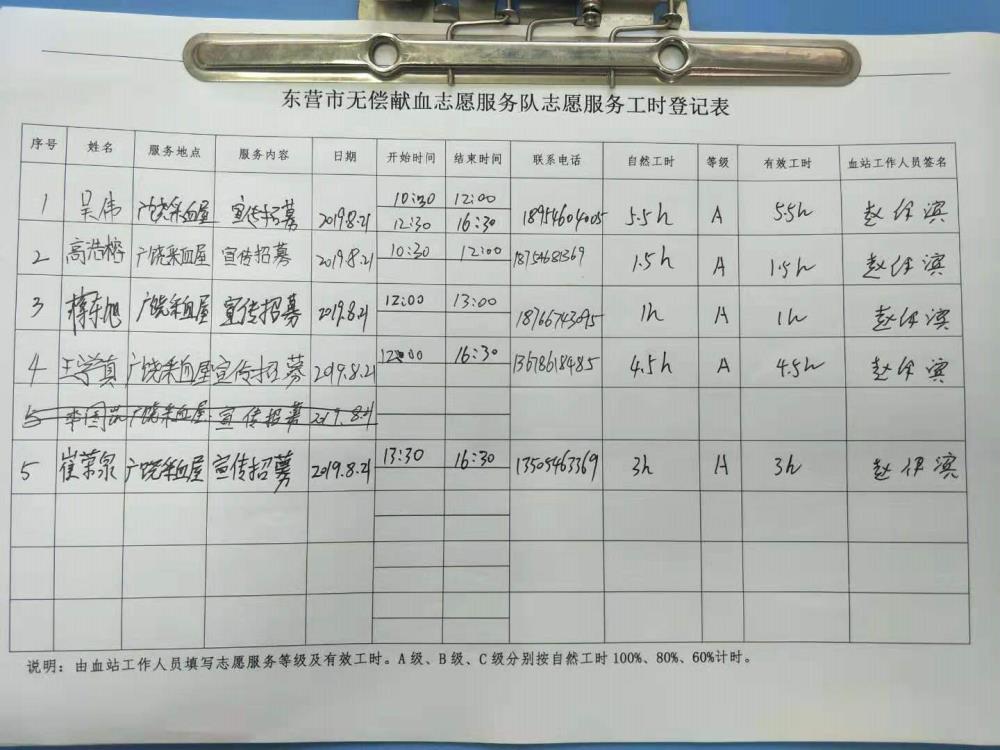 东营市无偿献血志愿服务队志愿服务工时登记表
序号 姓名 服务地点 服务内容 日期 开始时间 结束时间 联系电话 自然工时 等级 有效工时 血站工作人员签名
1 吴伟 广饶采血屋 宣传招募 2019.8.21 10:30 12:00 18954604005 5.5h A 5.5h 赵仔滨
12:30 16:30
2 高浩榕 广饶采血屋 宣传招募 2019.8.21 10:30 12:00 18754681369 1.5h A 1.5h 赵仔滨
3 东旭 广饶采血屋 宣传招募 2019.8.21 12:00 13:00 18766743095 1h A 1h 赵仔滨
4 王学真 广饶采血屋 宣传招募 2019.8.21 12:00 16:30 13618618485 4.5h A 4.5h 赵仔滨
5 李国 广饶采血屋 宣传招募 2019.8.21
5 崔荣泉 广饶采血屋 宣传招募 2019.8.21 13:30 16:30 13505463369 3h A 3h 赵仔滨
说明：由血站工作人员填写志愿服务等级及有效工时。A级、B级、C级分别按自然工时100%、80%、60%计时。